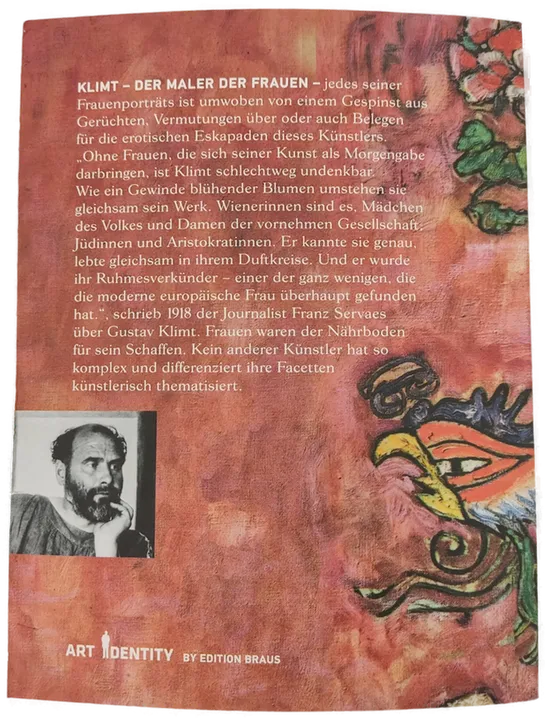 KLIMT – DER MALER DER FRAUEN – jedes seiner
Frauenporträts ist umwoben von einem Gespinst aus
Gerüchten, Vermutungen über oder auch Belegen
für die erotischen Eskapaden dieses Künstlers.
„Ohne Frauen, die sich seiner Kunst als Morgengabe
darbringen, ist Klimt schlechtweg undenkbar.
Wie ein Gewinde blühender Blumen umstehen sie
gleichsam sein Werk. Wienerinnen sind es, Mädchen
des Volkes und Damen der vornehmen Gesellschaft;
Jüdinnen und Aristokratinnen. Er kannte sie genau,
lebte gleichsam in ihrem Duftkreise. Und er wurde
ihr Ruhmesverkünder – einer der ganz wenigen, die
die moderne europäische Frau überhaupt gefunden
hat.“, schrieb 1918 der Journalist Franz Servaes
über Gustav Klimt. Frauen waren der Nährboden
für sein Schaffen. Kein anderer Künstler hat so
komplex und differenziert ihre Facetten
künstlerisch thematisiert.
ART IDENTITY BY EDITION BRAUS